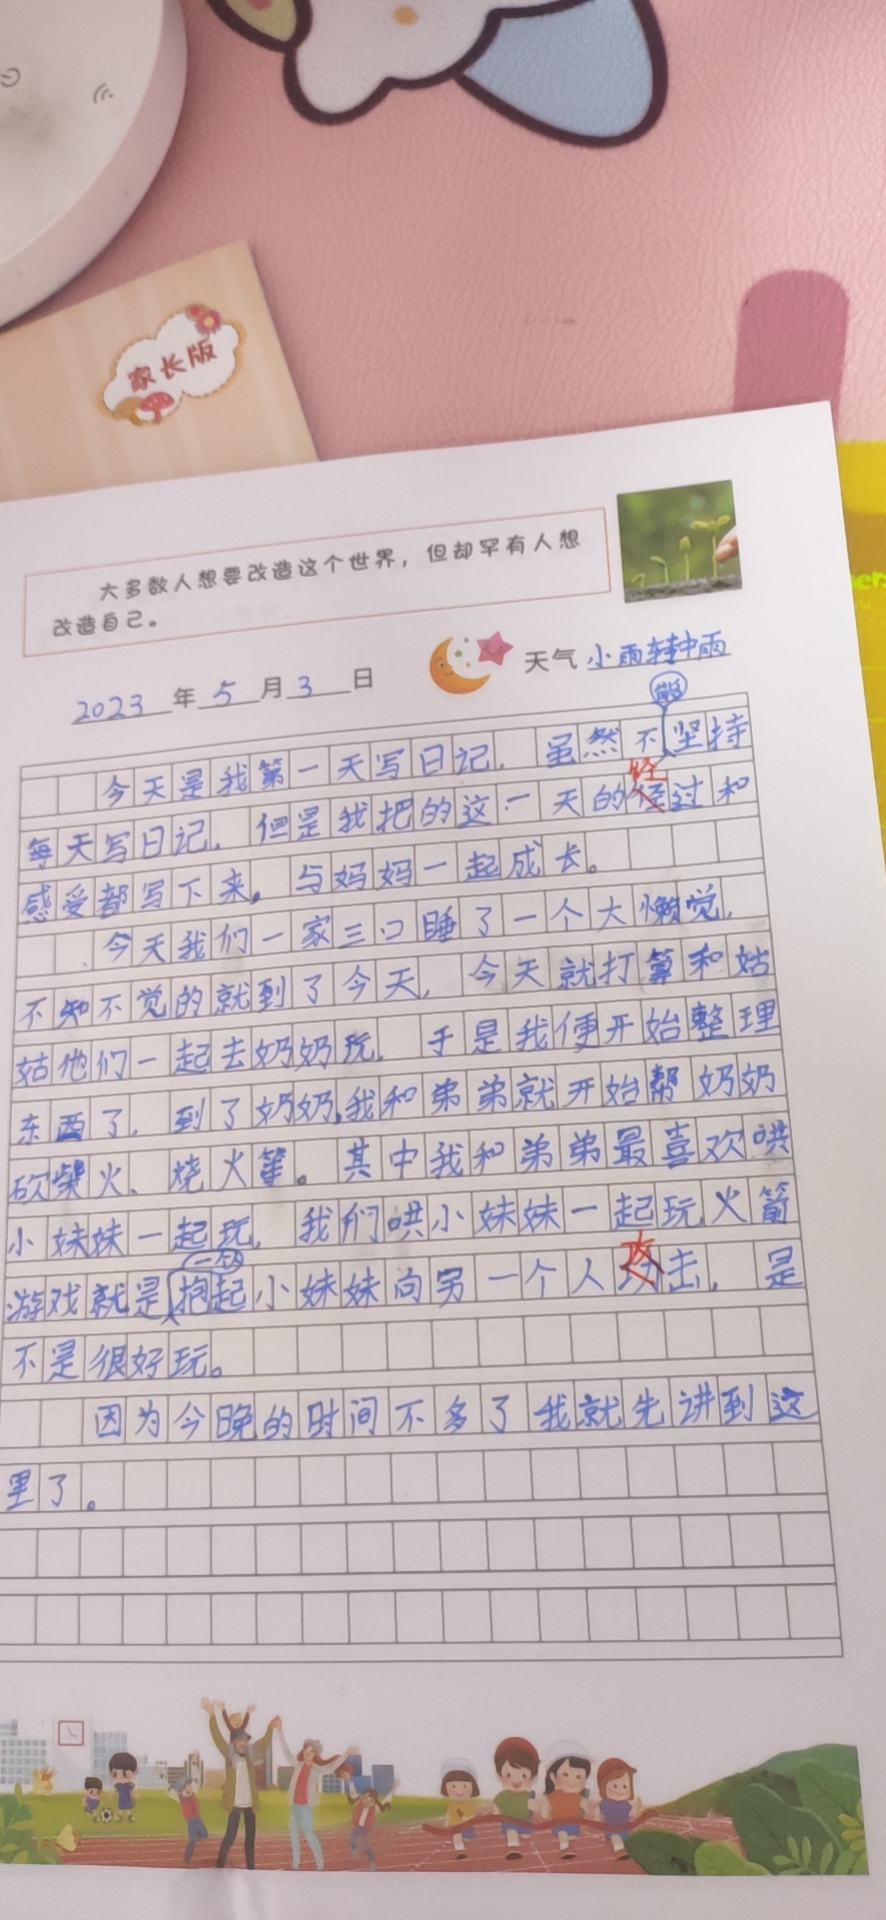 家长版
大多数人想要改造这个世界，但却罕有人想
改造自己。
2023年5月3日 天气 小雨转中雨
今天是我第一天写日记，虽然不能坚持
每天写日记，但是我把的这一天的经过和
感受都写下来，与妈妈一起成长。
今天我们一家三口睡了一个大懒觉，
不知不觉的就到了今天，今天就打算和姑
姑他们一起去奶奶玩，于是我便开始整理
东西了，到了奶奶，我和弟弟就开始帮奶奶
砍柴火、烧火篁。其中我和弟弟最喜欢哄
小妹妹一起玩，我们哄小妹妹一起玩火箭
游戏就是一个人抱起小妹妹向另一个人攻击，是
不是很好玩。
因为今晚的时间不多了我就先讲到这
里了。